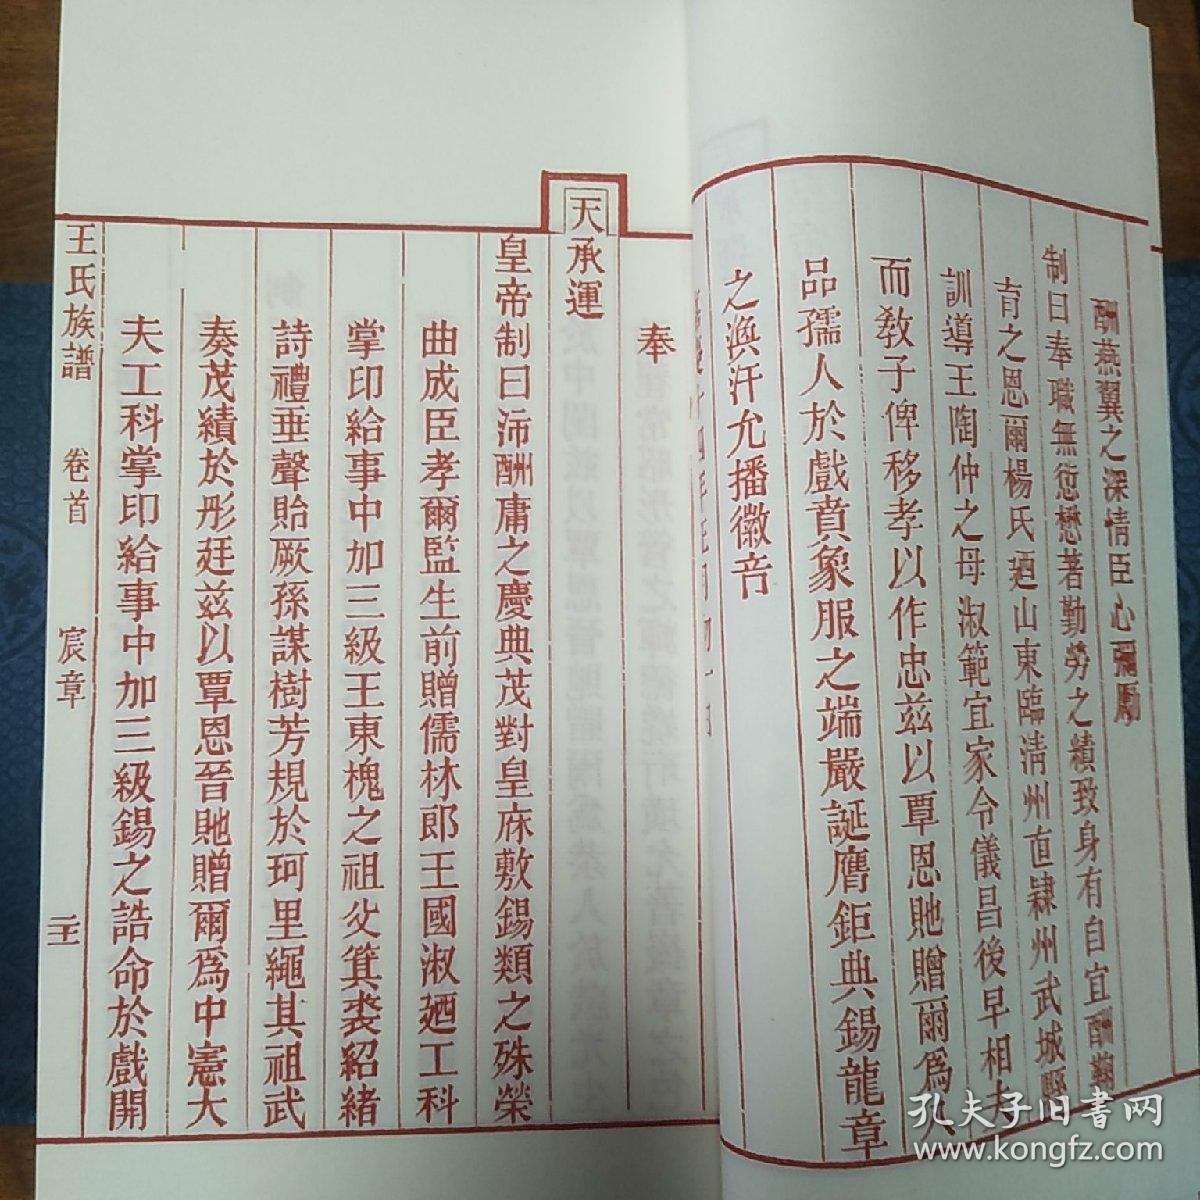 酬燕翼之深情臣心彌勵
制曰奉職無愆懋著勤勞之績致身有自宜酬鞠
育之恩爾楊氏廼山東臨清州直隸州武城縣
訓導王陶仲之母淑範宜家令儀昌後早相夫
而教子俾移孝以作忠兹以覃恩貤贈爾爲八
品孺人於戲賁象服之端嚴誕膺鉅典錫龍章
之渙汗允播徽音
奉
天承運
皇帝制曰沛酬庸之慶典茂對皇庥敷錫類之殊榮
曲成臣孝爾監生前贈儒林郎王國淑廼工科
掌印給事中加三級王東槐之祖父箕裘紹緒
詩禮垂聲貽厥孫謀樹芳規於珂里繩其祖武
奏茂績於彤廷兹以覃恩晉貤贈爾爲中憲大
夫工科掌印給事中加三級錫之誥命於戲開
王氏族譜 卷首 宸章 二十一
孔夫子旧書网
www.kongfz.com